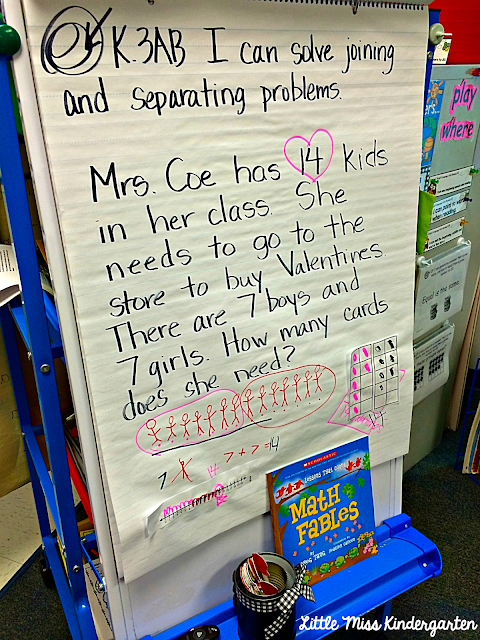 K.3AB I can solve joining
and separating problems.
Mrs. Coe has 14 kids
in her class. She
needs to go to the
store to buy Valentines
There are 7 boys and
7 girls. How many cards
does she need?
7+7=14
7
14
14
play
where
Equal is the same
SCHOLASTIC
Math
Fables
Little Miss Kindergarten